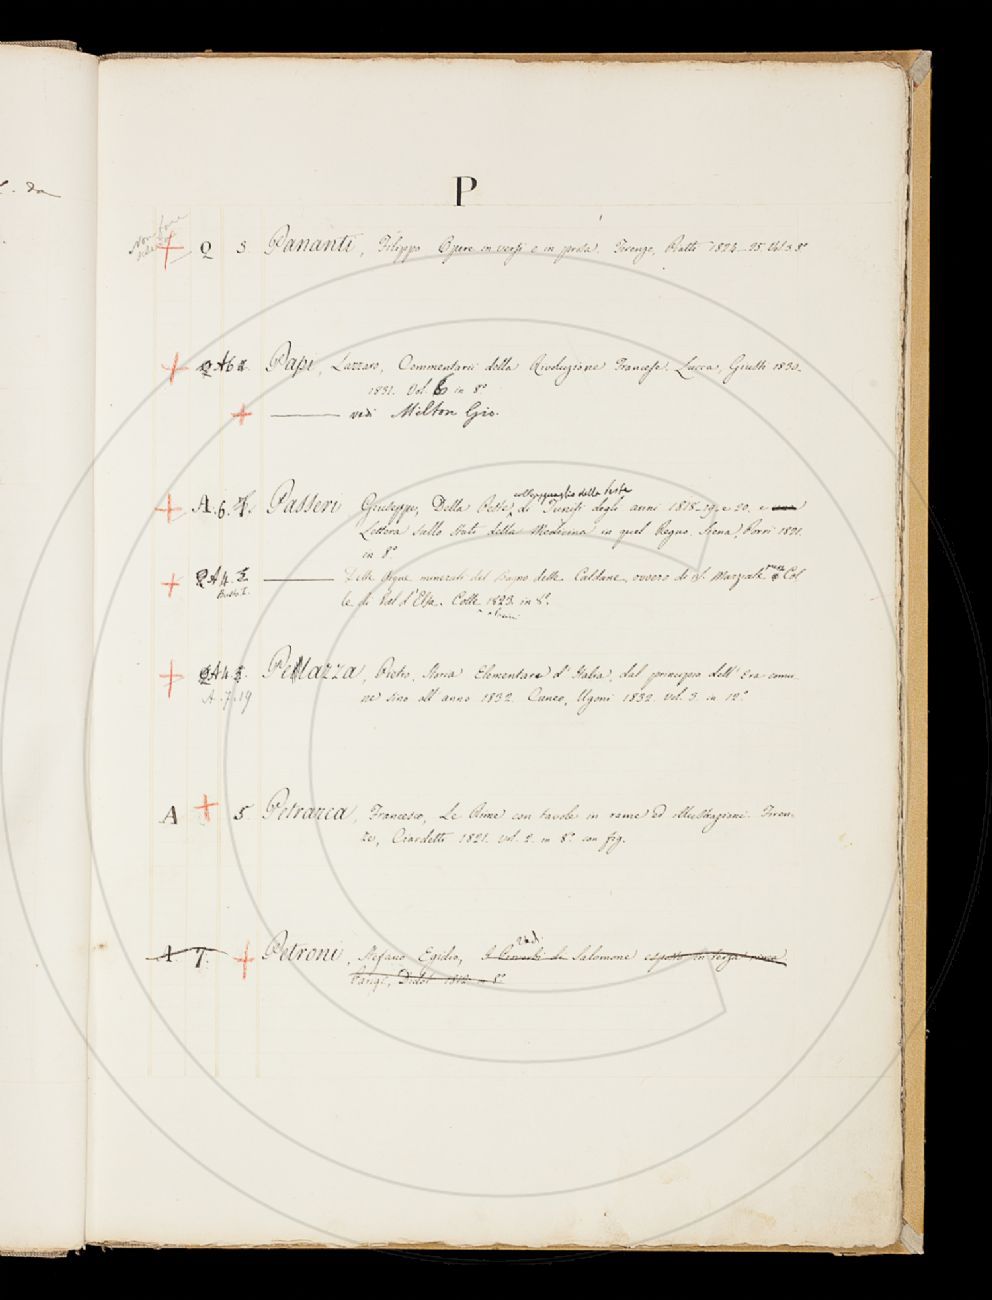 . da
P
Non fare
Q 3. Pananti, Filippo Opere in versi e in prosa. Firenze, Piatti 1824-25 Vol. 3 8°
Q A 6 2. Papi, Lazzaro, Commentarii della Rivoluzione Francese. Lucca, Giusti 1830.
1831. Vol. 6 in 8°
——— vedi Milton Gio.
coll'
A. 6. 7. Passeri Giuseppe, Della Peste di Tunisi degli anni 1818-19, e 20. e una
Lettera sullo Stato della Medicina in quel Regno. Siena, Porri 1821.
in 8°
Q A 4. 2. ——— Delle Acque minerali del Bagno delle Caldane, ovvero di S. Marziale presso Col
Busta I.
le di Val d'Elsa. Colle 1823. in 8°.
Q A 4. 3. Pellazza, Pietro, Storia Elementare d'Italia, dal principio dell'Era comu-
A. 7. 19
ne sino all'anno 1832. Cuneo, Ugoni 1832. Vol. 3. in 12°
A 5. Petrarca, Francesco, Le Rime con tavole in rame ed illustrazioni. Firen-
ze, Ciardetti 1821. Vol. 2. in 8° con fig.
vedi
A 7. Petroni, Stefano Egidio, I Proverbi di Salomone esposti in terza rima
Parigi, Didot 1812 in 8°